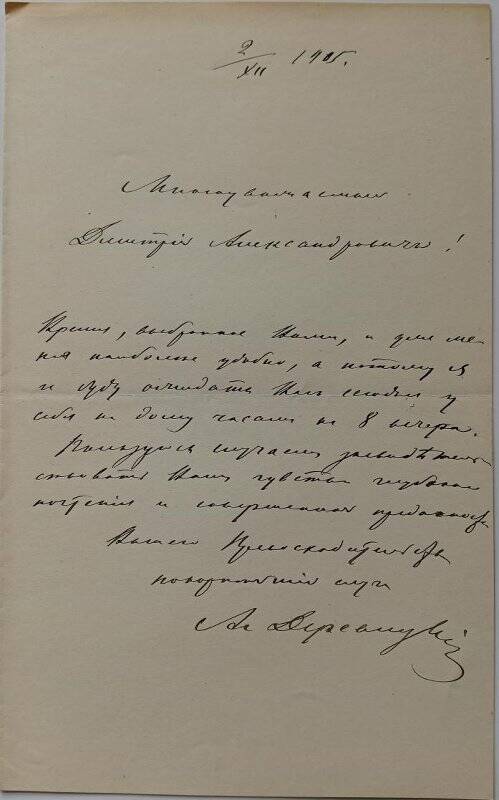 2/XII 1905.
Многоуважаемый
Дмитрій Александровичъ!
Время, выбранное Вами, и для ме-
ня наиболее удобно, а потому я
и буду ожидать Васъ сегодня у
себя на дому часамъ къ 8 вечера.
Пользуюсь случаемъ засвидѣтель-
ствовать Вамъ чувства глубокаго
почтенія и совершенной преданности
Вашего Превосходительства
покорнѣйшій слуга
Ал Деревицкій